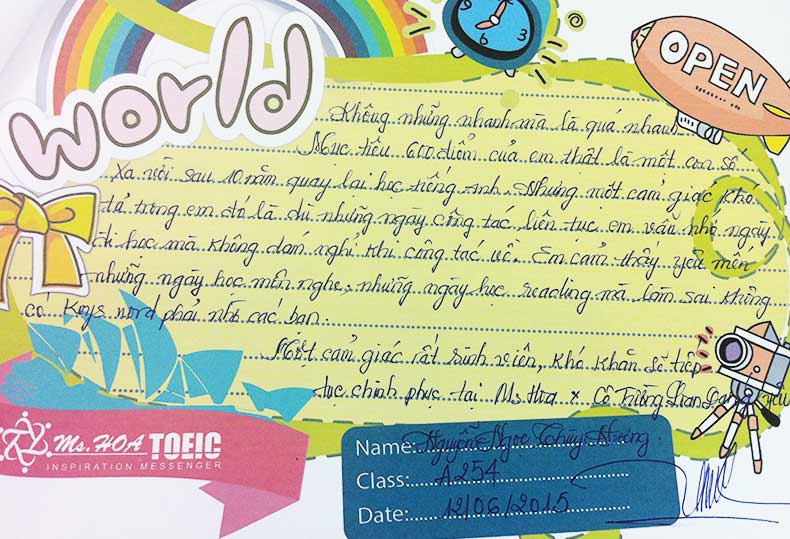 world
OPEN
Không những nhanh mà là quá nhanh
Mục tiêu 600 điểm của em thật là một con số
xa vời sau 10 năm quay lại học tiếng Anh. Nhưng một cảm giác khó
tả trong em đó là dù những ngày công tác liên tục em vẫn nhớ ngày
đi học mà không dám nghỉ khi công tác về. Em cảm thấy yêu mến
những ngày học môn nghe, những ngày học reading mà làm sai không
có keys word phải nhờ các bạn.
Một cảm giác rất sinh viên, khó khăn sẽ tiếp
tục chinh phục tại Ms Hoa & Cô
Ms. HOA TOEIC
INSPIRATION MESSENGER
Name: Nguyễn Ngọc Thùy Hương
Class: A254
Date: 12/06/2015